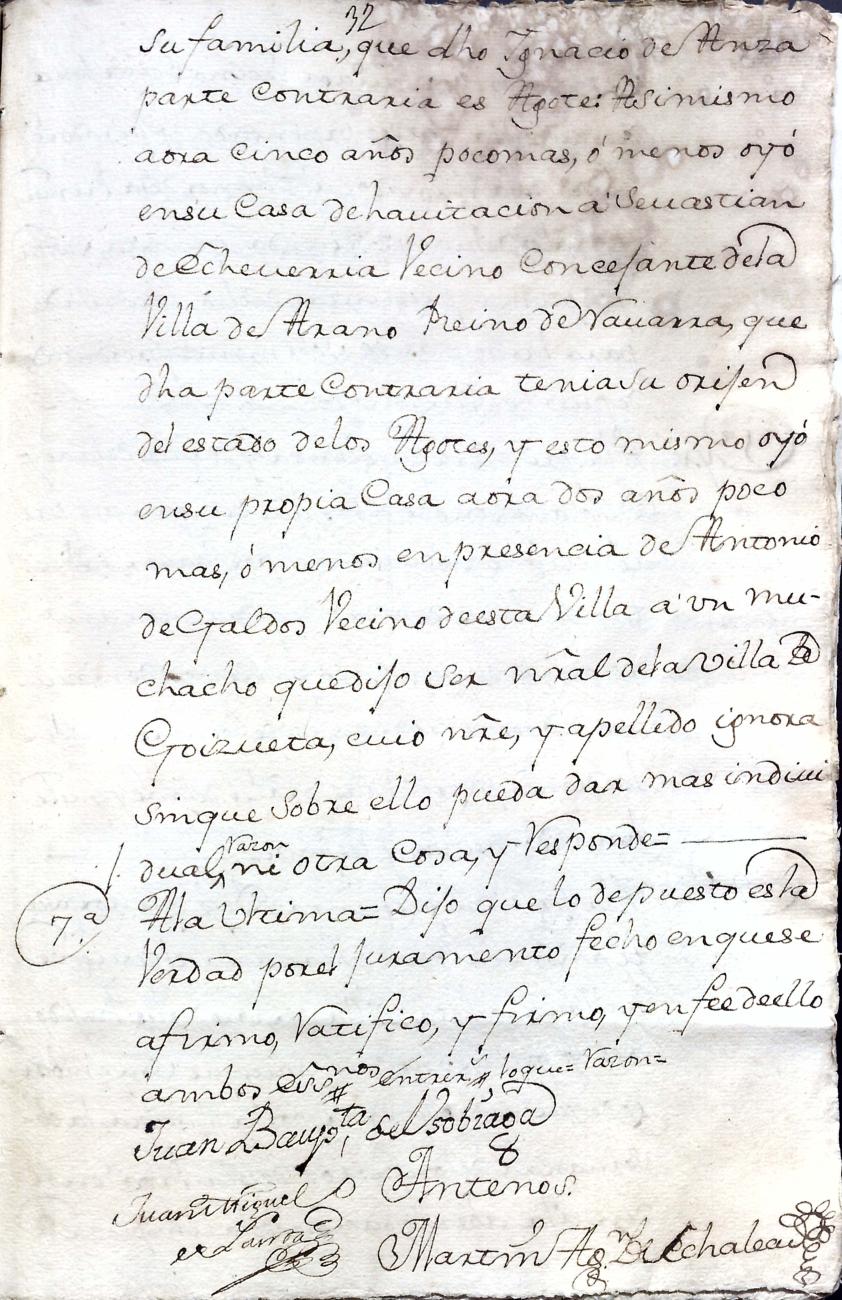 32
su familia, que dho Ignacio de Anza
parte Contraria es Agote: Asimismo
aora cinco años pocomas, ó menos oyó
ensu Casa dehavitacion a Sevastian
de Echeverria Vecino Concejante dela
Villa de Arano Reino de Navarra, que
dha parte Contraria teniasu orijen
del estado delos Agotes, y esto mismo oyó
ensu propia Casa aora dos años poco
mas, ó menos enpresencia de Antonio
de Galdos Vecino deesta Villa a un mu-
chacho quedijo ser nral dela villa de
Goizueta, cuio nre, y apellido ignora
sinque sobre ello pueda dar mas indivi
Razon
dual, ni otra Cosa, y Responde=
7.a
Ala Ultima= Dijo que lo depuesto es la
Verdad porel Juramento fecho enquese
afirmo, Ratifico, y firmo, yenfee deello
ambos essnos entrerrs loque= Razon=
Juan Baupta de
Antenos.
Juan Miguel
de
Martin Ag.n de Echaleau